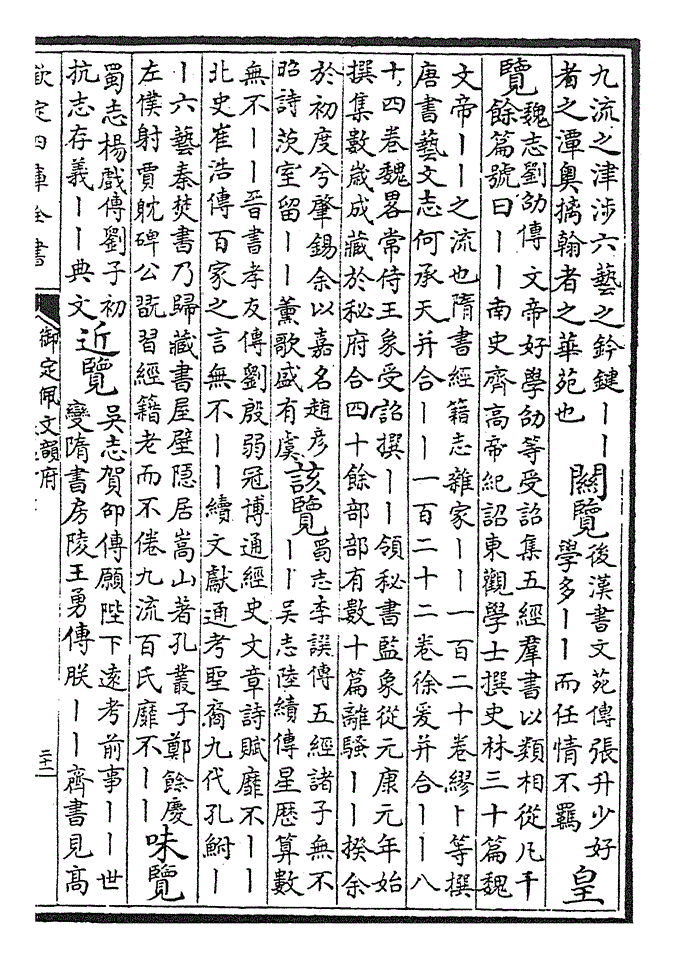 九流之津涉六藝之鈐鍵丨丨
者之潭奥摛翰者之華苑也
闗覽
後漢書文苑傳張升少好
學多丨丨而任情不羈
皇
覽
魏志劉劭傳文帝好學劭等受詔集五經羣書以類相從凡千
餘篇號曰丨丨南史齊高帝紀詔東觀學士撰史林三十篇魏
文帝丨丨之流也隋書經籍志雜家丨丨一百二十卷繆卜等撰
唐書藝文志何承天并合丨丨一百二十二卷徐爰并合丨丨八
十四卷魏畧常侍王象受詔撰丨丨領秘書監象從元康元年始
撰集數歲成藏於秘府合四十餘部部有數十篇離騷丨丨揆余
於初度兮肇錫余以嘉名趙彦
昭詩茨室留丨丨薰歌盛有虞
該覽
蜀志李譔傳五經諸子無不
丨丨吳志陸績傳星歴算數
無不丨丨晉書孝友傳劉殷弱冠博通經史文章詩賦靡不丨丨
北史崔浩傳百家之言無不丨丨續文獻通考聖裔九代孔鮒丨
丨六藝秦焚書乃歸藏書屋壁隱居嵩山著孔叢子鄭餘慶
左僕射賈躭碑公既習經籍老而不倦九流百氏靡不丨丨
味覽
蜀志楊戲傳劉子初
抗志存義丨丨典文
近覽
吳志賀邵傳願陛下逺考前事丨丨世
變隋書房陵王勇傳朕丨丨齊書見高
欽定四庫全書
御定佩文韻府